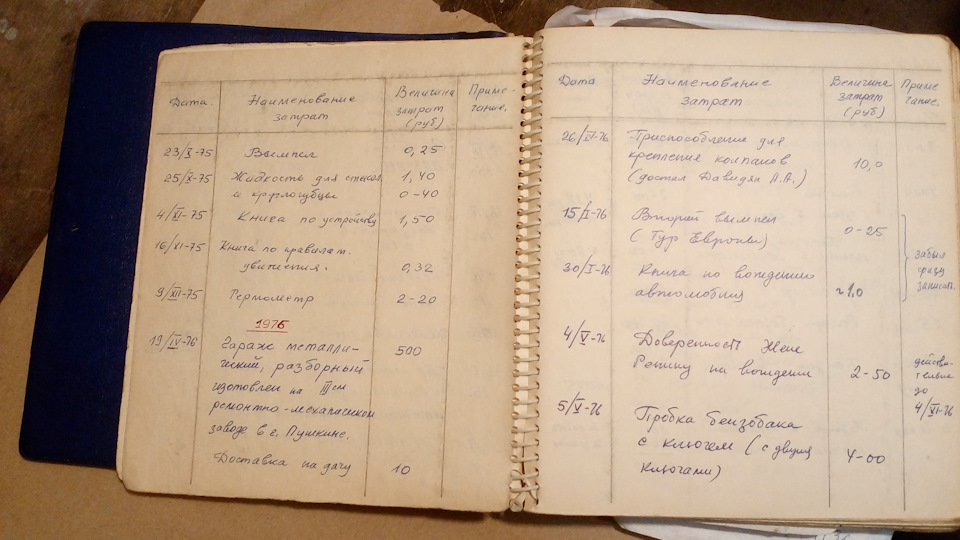 Дата. Наименование затрат Величина затрат (руб) Приме-чание.
23/X-75 Вымпел 0,25
25/X-75 Жидкость для стекол 1,40
и круглогубцы 0-40
4/XI-75 Книга по устройству 1,50
16/XI-75 Книга по правилам.
движения. 0,32
9/XII-75 Термометр 2-20
1976
19/IV-76 Гараж металли- 500
ческий, разборный
изготовлен на III ем
ремонтно-механическом
заводе в г. Пушкине.
Доставка на дачу 10
Дата Наименование затрат Величина затрат (руб) Приме чание.
26/IV-76 Приспособление для
крепления колпаков 10,0
(достал Давидян А.А.)
15/I-76 Второй вымпел 0-25
(Тур Европы)
забыл
сразу
записать
30/I-76 Книга по вождению
автомобиля ~1,0
4/V-76 Доверенность Жене
Репину на вождение 2-50
действи-
тельна
до
4/VI-76
5/V-76 Пробка бензобака
с ключем (с двумя 4-00
ключами)